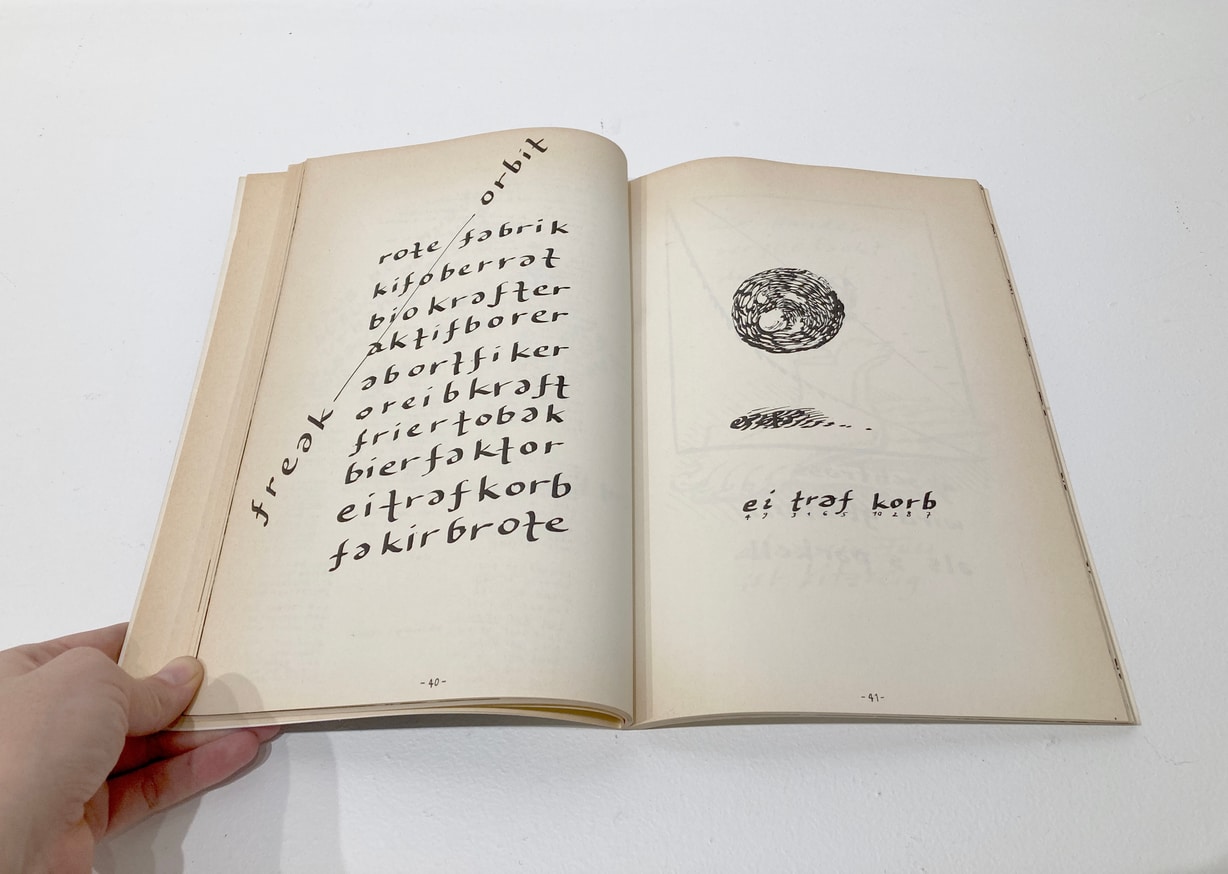 orbit
rote fabrik
kifoberrat
biokrafter
aktifborer
abortfiker
oreibkraft
friertobak
bierfaktor
eitrafkorb
fakirbrote
freak
-40-
ei traf korb
-41-